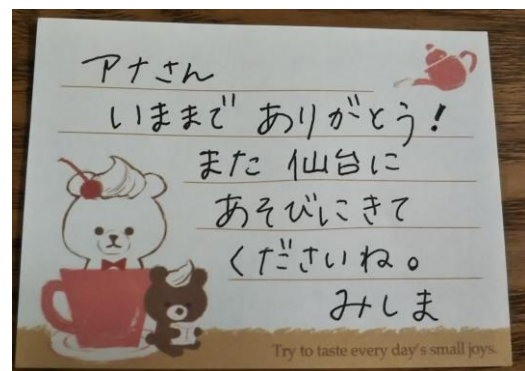 アナさん
いままで ありがとう!
また 仙台に
あそびにきて
くださいね。
みしま
Try to taste every day's small joys.